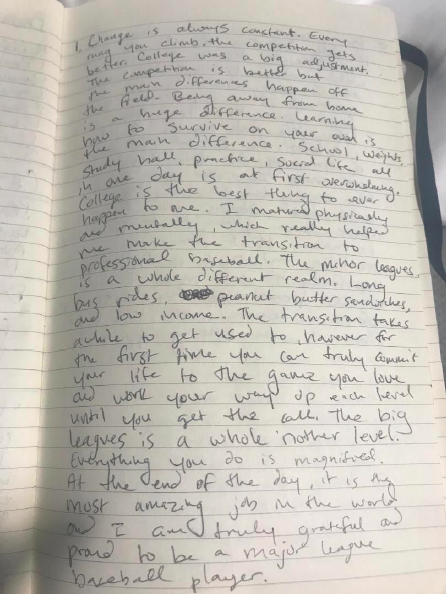 1. Change is always constant. Every
rung you climb, the competition gets
better. College was a big adjustment.
The competition is better but
the main differences happen off
the field. Being away from home
is a huge difference. Learning
how to survive on your own is
the main difference. School, weights,
study hall, practice, social life all
in one day is at first overwhelming.
College is the best thing to ever
happen to me. I matured physically
and mentally, which really helped
me make the transition to
professional baseball. The minor leagues
is a whole different realm. Long
bus rides, peanut butter sandwiches,
and low income. The transition takes
awhile to get used to, however for
the first time you can truly commit
your life to the game you love
and work your way up each level
until you get the call. The big
leagues is a whole nother level.
Everything you do is magnified.
At the end of the day, it is the
most amazing job in the world
and I am truly grateful and
proud to be a major league
baseball player.